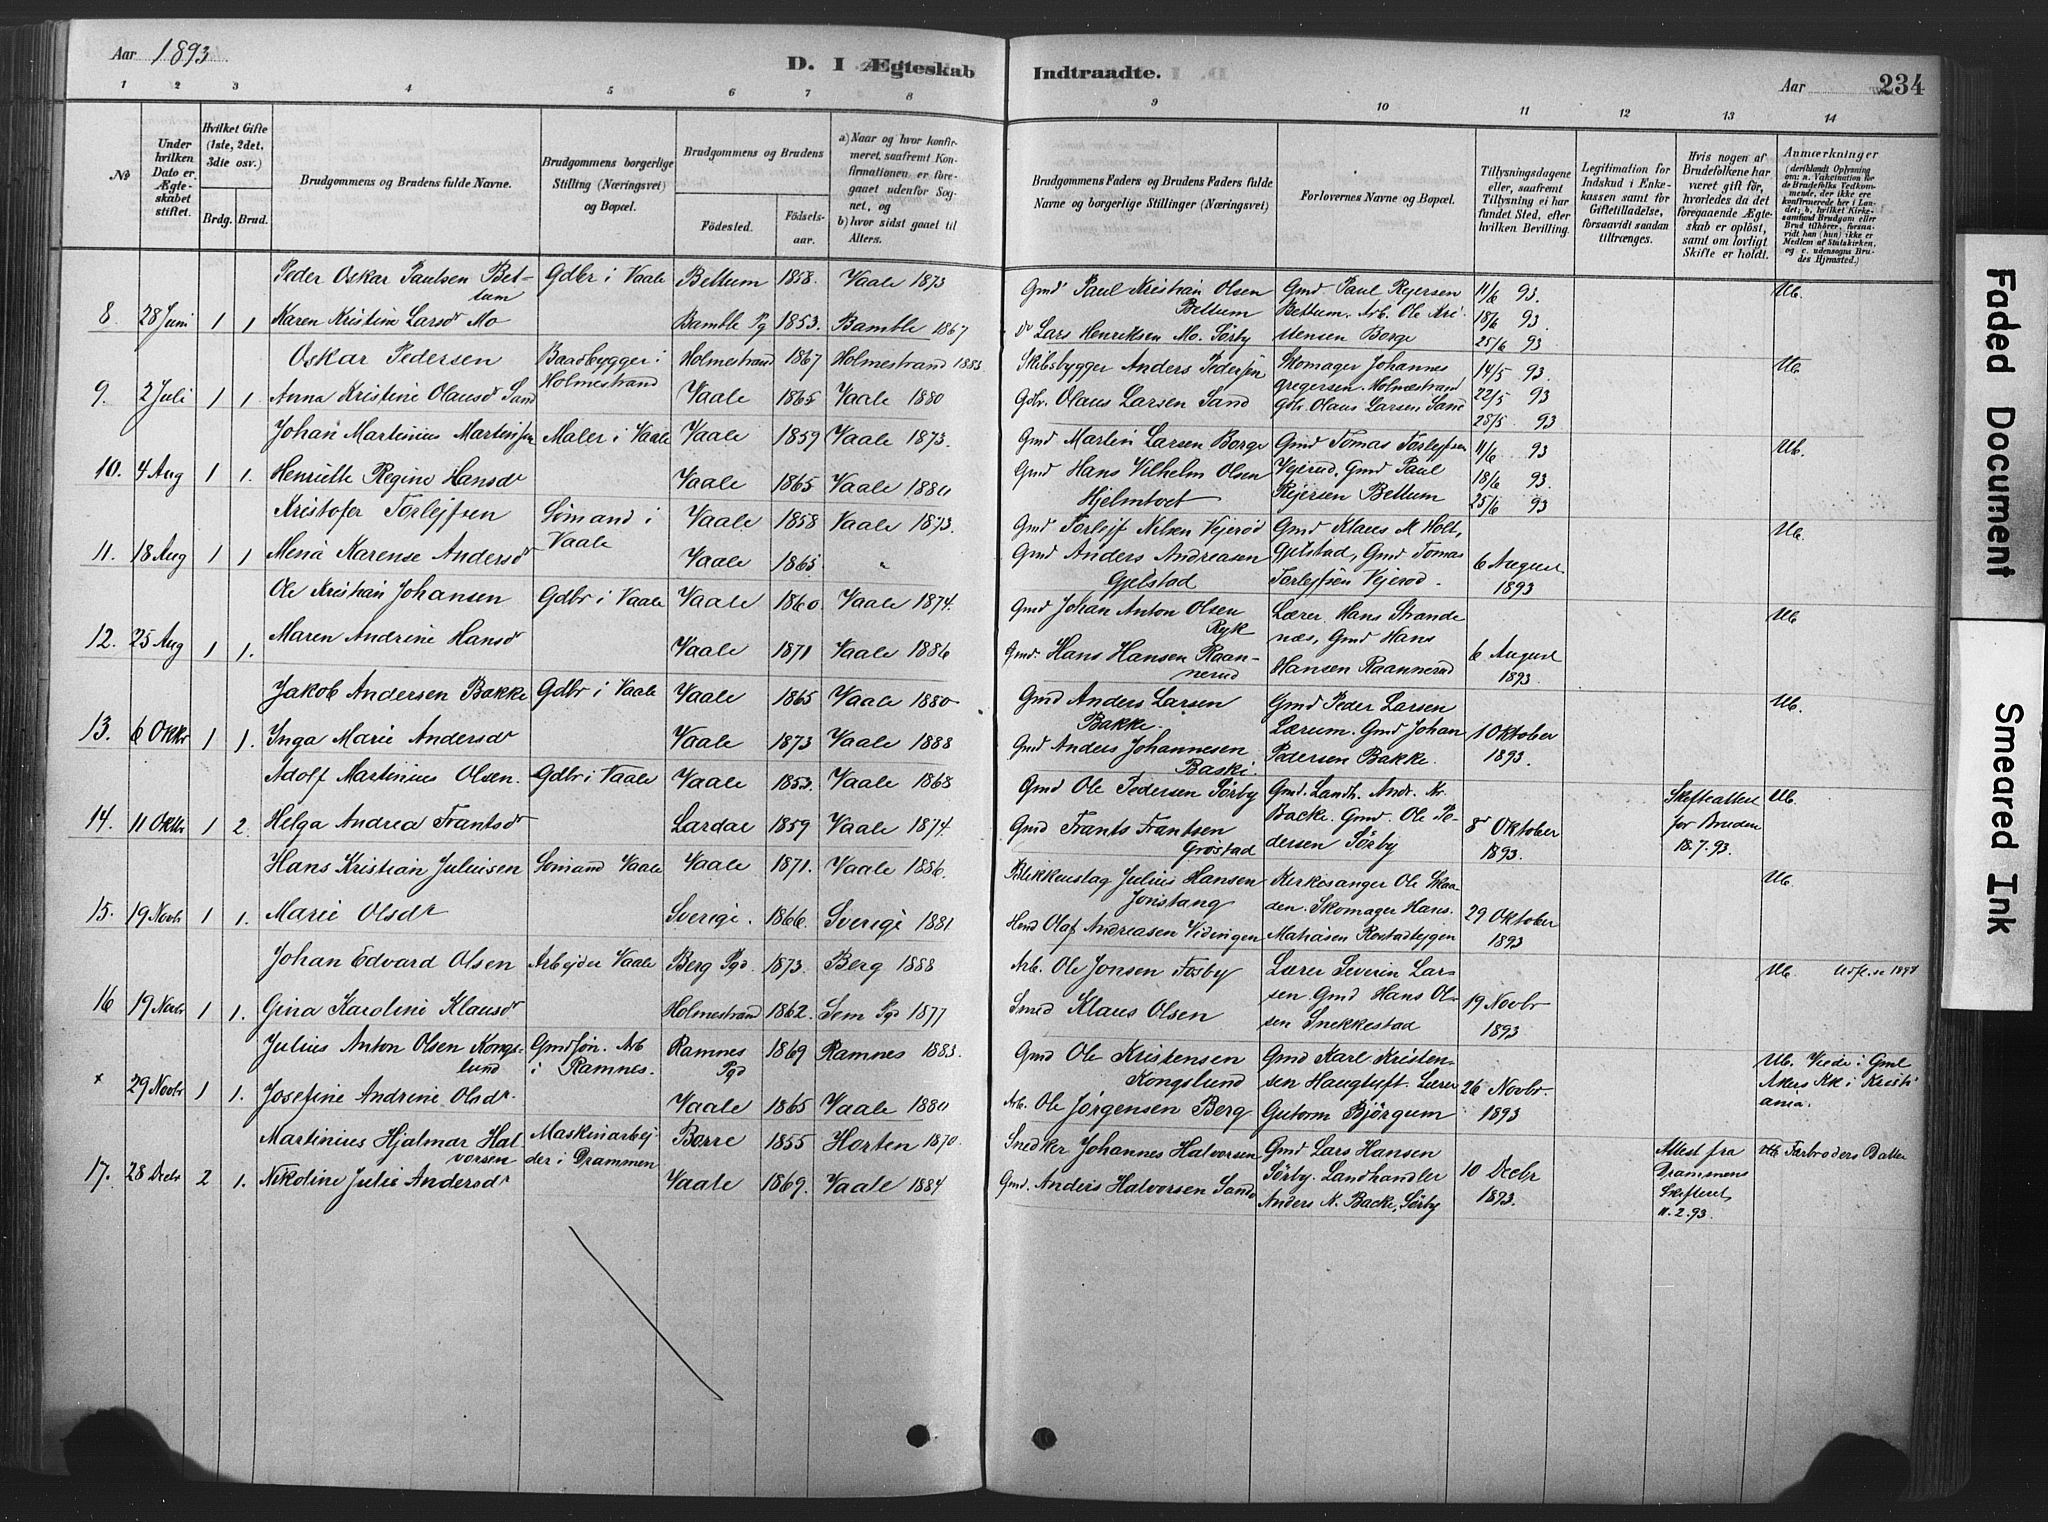 Aar 1893
D. I Ægteskab Indtraadte.
Aar
234
1 2 3 4 5 6 7 8 9 10 11 12 13 14
No
Under hvilken Dato er Ægteskabet stiftet.
Hvilket Gifte (1ste, 2det, 3die osv.)
Brdg. Brud.
Brudgommens og Brudens fulde Navne.
Brudgommens borgerlige Stilling (Næringsvei) og Bopæl.
Brudgommens og Brudens
Fødested.
Fødselsaar.
a) Naar og hvor konfirmeret, saafremt Konfirmationen er foregaaet udenfor Sognet, og
b) hvor sidst gaaet til Alters.
Brudgommens Faders og Brudens Faders fulde Navne og borgerlige Stillinger (Næringsvei)
Forlovernes Navne og Bopæl.
Tillysningsdagene eller, saafremt Tillysning ei har fundet Sted, efter hvilken Bevilling.
Legitimation for Indskud i Enkekassen samt for Giftetilladelse, forsaavidt saadan tiltrænges.
Hvis nogen af Brudefolkene har været gift før, hvorledes da det foregaaende Ægteskab er opløst, samt om lovligt Skifte er holdt.
Anmærkninger
(deriblandt Oplysning om: a. Vakcination for de Brudefolks Vedkommende, der ikke ere konfirmerede her i Landet; b. hvilket Kirkesamfund Brudgom eller Brud tilhører, forsaavidt han (hun) ikke er Medlem af Statskirken, og c. udensogns Brudes Hjemsted.)
Peder Oskar Paulsen Bettum Gdbr i Vaale Bettum 1858. Vaale 1873 Gmd Paul Kristian Olsen Bettum Gmd Paul Rejersen 11/6 93. Ub.
8. 28 Juni 1 1 Karen Kristine Larsdr Mo Bamble Pg 1853. Bamble 1867 do Lars Henriksen Mo. Sörby Bettum. Arb. Ole Kristensen Borge 18/6 93. 25/6 93
Oskar Pedersen Baadbygger i Holmestrand Holmestrand 1867 Holmestrand 1883 Skibsbygger Anders Pedersen Skomager Johannes 14/5 93. Ub.
9. 2 Juli 1 1. Anna Kristine Olausdr Sand Vaale 1865 Vaale 1880 Gdbr. Olaus Larsen Sand Gregersen. Holmestrand Gdbr. Olaus Larsen Sand 22/5 93 25/5 93
Johan Martinius Martinsen Maler i Vaale Vaale 1859 Vaale 1873. Gmd Martin Larsen Borge Gmd Tomas Torlejfsen 11/6 93 Ub.
10. 4 Aug 1 1. Henriette Regine Hansdr Vaale 1865 Vaale 1880 Gmd Hans Vilhelm Olsen Hjelmtvet Vejerud. Gmd Paul Rejersen Bettum 18/6 93. 25/6 93
Kristofer Torlejfsen Sömand i Vaale Vaale 1858 Vaale 1873. Gmd Torlejf Nilsen Vejeröd Gmd Klaus M Holt, Ub.
11. 18 Aug 1 1 Mena Karense Andersdr Vaale 1865 " Gmd Anders Andreasen Gjelstad Gjelstad, Gmd Tomas Torlejfsen Vejeröd. 6 August 1893
Ole Kristian Johansen Gdbr i Vaale Vaale 1860. Vaale 1874. Gmd Johan Anton Olsen Ryk Lærer Hans Strandenæs, Gmd Hans Ub
12. 25 Aug 1 1. Maren Andrine Hansdr Vaale 1871 Vaale 1886 Gmd. Hans Hansen Raannerud Hansen Raannerud 6 August 1893
Jakob Andersen Bakke Gdbr i Vaale Vaale 1865 Vaale 1880 Gmd Anders Larsen Bakke. Gmd Peder Larsen Ub.
13. 6 Oktbr 1 1. Inga Marie Andersdr Vaale 1873 Vaale 1888 Gmd Anders Johannesen Lærum. Gmd Johan Pedersen Bakke. 1 Oktober 1893.
Adolf Martinius Olsen. Gdbr i Vaale Vaale 1853. Vaale 1868 Gmd Ole Pedersen Sörby Gmd. Landh. Andr. N. Skifteattest Ub.
14. 11 Oktbr 1 2. Helga Andrea Frantsdr Lardal 1859 Vaale 1874. Gmd Frants Frantsen Gröstad Backe. Gmd. Ole Pedersen Sörby 8 Oktober 1893. for Bruden 18.7.93.
Hans Kristian Juliusen Sömand Vaale Vaale 1871. Vaale 1886. Blikkenslag Julius Hansen Jonstang Kirkesanger Ole Skaaden. Skomager Hans Ub.
15. 19 Novbr 1 1. Marie Olsdr Sverige. 1866. Sverige 1881. Olaf Andreasen Vidingen Matiasen Röstadbygen 29 Oktober 1893
Johan Edvard Olsen Arbejder Vaale Berg Pgd. 1873. Berg 1888 Arb. Ole Jonsen Fosby Lærer Severin Larsen Gmd Hans Olsen Snekkestad Ub. 1894
16 19 Novbr 1 1. Gina Karoline Klausdr Holmestrand 1862. Sem Pgd 1877 Smed Klaus Olsen 19 Novbr 1893
Julius Anton Olsen Kongslund Gmdsön. Arb i Ramnes. Ramnes Pgd 1869 Ramnes 1883. Gmd Ole Kristensen Kongslund Gmd Karl Kristensen Haugtuft. Lærer Ub. Viede i Gml Akers Kk i Kristiania.
x 29 Novbr 1 1. Josefine Andrine Olsdr. Vaale 1865 Vaale 1880 Arb. Ole Jörgensen Berg Gutorm Björgum 26 Novbr. 1893
Martinius Hjalmar Halvorsen Maskinarbejder i Drammen Borre 1855 Horten 1870. Snedker Johannes Halvorsen Gmd Lars Hansen Attest fra Drammens Skifteret 11.2.93.
17. 28 Decbr 2 1. Nikoline Julie Andersdr Vaale 1869. Vaale 1884 Gmd. Anders Halvorsen Sande Sörby. Landhandler Anders N. Backe, Sörby 10 Decbr 1893.
Faded Document
Smeared Ink